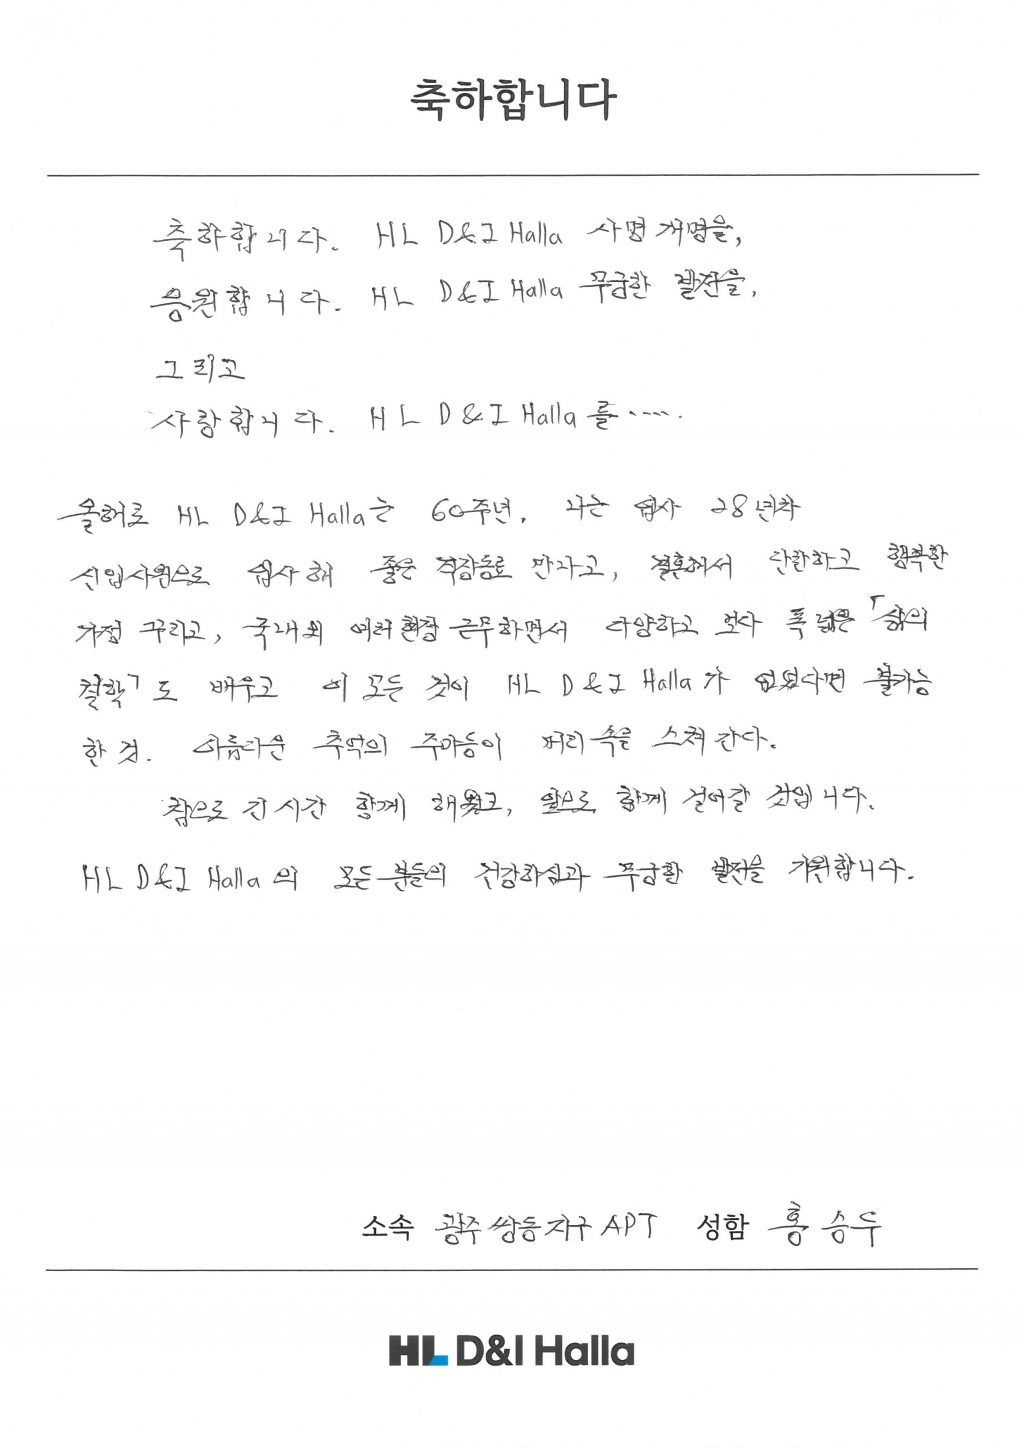 축하합니다
축하합니다. HL D&I Halla 사명 개명을,
응원합니다. HL D&I Halla 무궁한 발전을,
그리고
사랑합니다. HL D&I Halla를.....
올해로 HL D&I Halla는 60주년, 나는 입사 28년차
신입사원으로 입사해 좋은 직장동료 만나고, 결혼해서 단란하고 행복한
가정 꾸리고, 국내외 여러 현장 근무하면서 다양하고 보다 폭 넓은 「삶의
철학」도 배우고 이 모든 것이 HL D&I Halla가 없었다면 불가능
한 것. 아름다운 추억의 주마등이 머리 속을 스쳐 간다.
참으로 긴 시간 함께 해왔고, 앞으로 함께 걸어갈 것입니다.
HL D&I Halla의 모든 분들의 건강하심과 무궁한 발전을 기원합니다.
소속 광주쌍동지구APT 성함 홍승두
HL D&I Halla